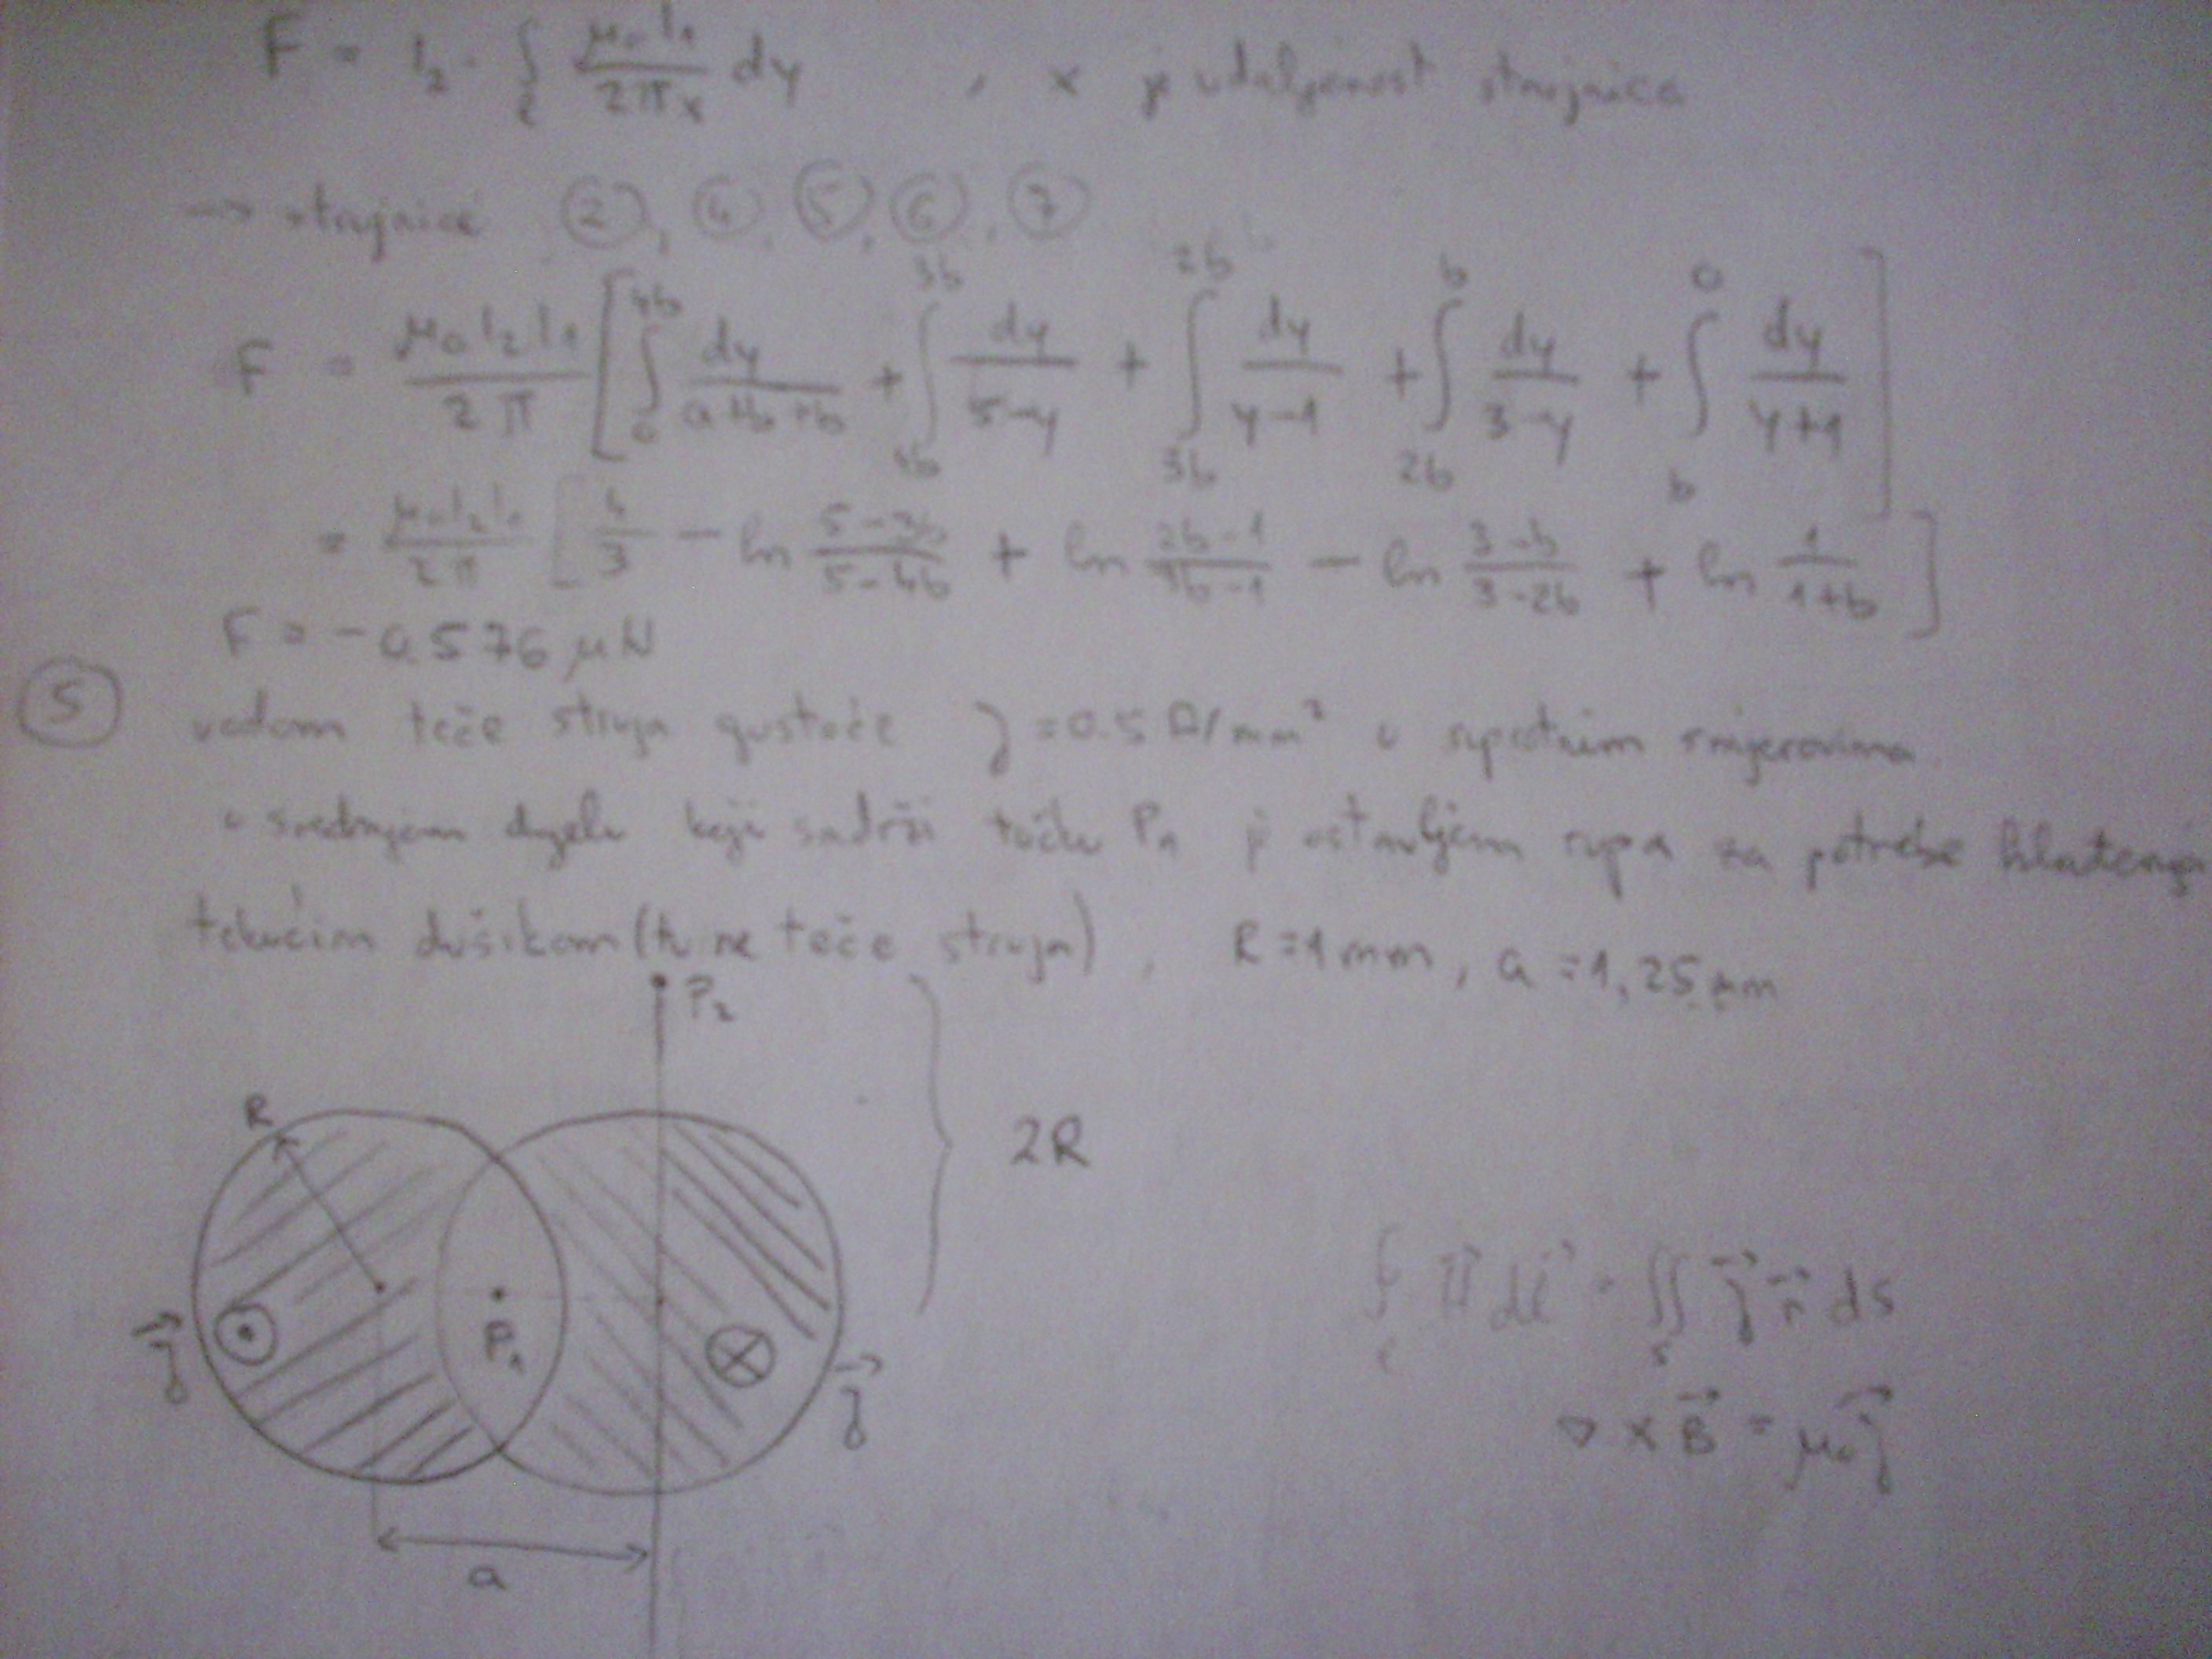 F = I₂ · ∫_ℓ μ₀I₁/(2πx) dy , x je udaljenost strujnica
→ strujnice ②, ④, ⑤, ⑥, ⑦
F = μ₀I₂I₁/(2π) [ ∫_0^{4b} dy/(a+b+b) + ∫_{4b}^{3b} dy/(5-y) + ∫_{3b}^{2b} dy/(y-1) + ∫_{2b}^{b} dy/(3-y) + ∫_b^0 dy/(y+1) ]
= μ₀I₂I₁/(2π) [ 4/3 - ln (5-3b)/(5-4b) + ln (2b-1)/(3b-1) - ln (3-b)/(3-2b) + ln 1/(1+b) ]
F = -0.576 μN
⑤ vodom teče struja gustoće J = 0.5 A/mm² u suprotnim smjerovima.
u srednjem dijelu koji sadrži točku P₁ je ostavljena rupa za potrebe hlađenja
tekućim dušikom (tu ne teče struja), R = 1 mm, a = 1,25 mm
P₂
R
2R
P₁
J⃗
J⃗
a
∮_c H⃗ dl⃗ = ∬_s J⃗ n⃗ ds
∇ × B⃗ = μ₀ J⃗